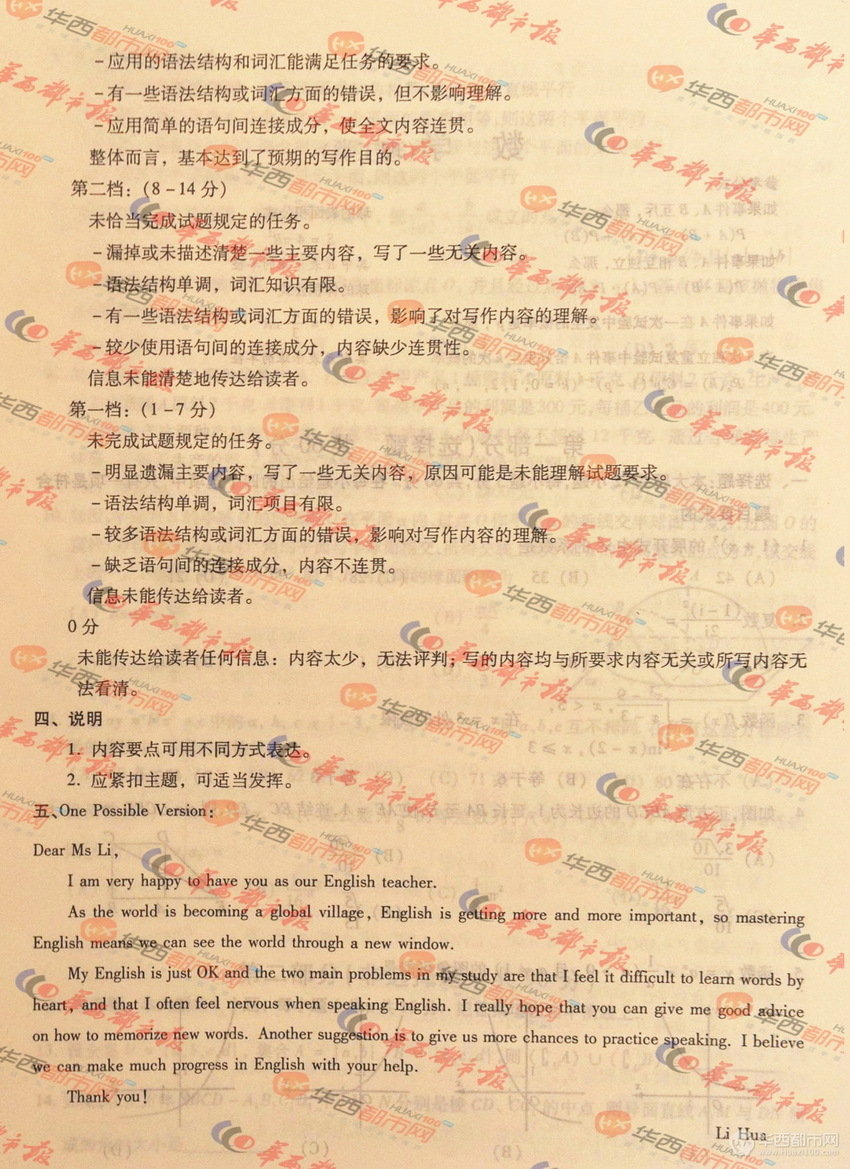 －应用的语法结构和词汇能满足任务的要求。
－有一些语法结构或词汇方面的错误，但不影响理解。
－应用简单的语句间连接成分，使全文内容连贯。
整体而言，基本达到了预期的写作目的。
第二档：（8－14分）
未恰当完成试题规定的任务。
－漏掉或未描述清楚一些主要内容，写了一些无关内容。
－语法结构单调，词汇知识有限。
－有一些语法结构或词汇方面的错误，影响了对写作内容的理解。
－较少使用语句间的连接成分，内容缺少连贯性。
信息未能清楚地传达给读者。
第一档：（1－7分）
未完成试题规定的任务。
－明显遗漏主要内容，写了一些无关内容，原因可能是未能理解试题要求。
－语法结构单调，词汇项目有限。
－较多语法结构或词汇方面的错误，影响对写作内容的理解。
－缺乏语句间的连接成分，内容不连贯。
信息未能传达给读者。
0分
未能传达给读者任何信息：内容太少，无法评判；写的内容均与所要求内容无关或所写内容无
法看清。
四、说明
1. 内容要点可用不同方式表达。
2. 应紧扣主题，可适当发挥。
五、One Possible Version：
Dear Ms Li,
I am very happy to have you as our English teacher.
As the world is becoming a global village, English is getting more and more important, so mastering
English means we can see the world through a new window.
My English is just OK and the two main problems in my study are that I feel it difficult to learn words by
heart, and that I often feel nervous when speaking English. I really hope that you can give me good advice
on how to memorize new words. Another suggestion is to give us more chances to practice speaking. I believe
we can make much progress in English with your help.
Thank you!
Li Hua
华西都市网
www.Huaxi100.com